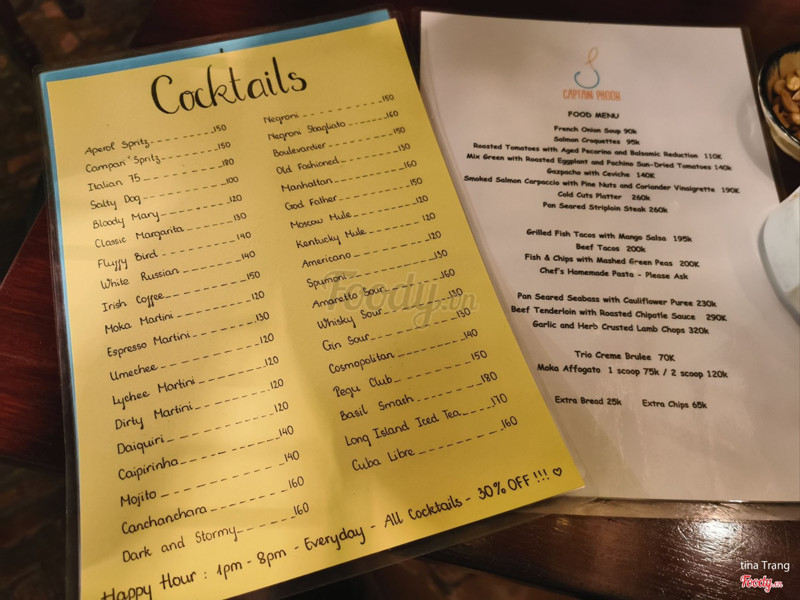 Cocktails
Aperol Spritz 150
Campari Spritz 150
Italian 75 180
Salty Dog 100
Bloody Mary 120
Classic Margarita 130
Fluffy Bird 140
White Russian 140
Irish Coffee 150
Moka Martini 120
Espresso Martini 130
Umechee 120
Lychee Martini 120
Dirty Martini 120
Daiquiri 120
Caipirinha 140
Mojito 140
Canchanchara 160
Dark and Stormy 160
Negroni 150
Negroni Sbagliato 160
Boulevardier 150
Old Fashioned 130
Manhattan 160
God Father 150
Moscow Mule 120
Kentucky Mule 120
Americano 120
Spumoni 130
Amaretto Sour 160
Whisky Sour 130
Gin Sour 130
Cosmopolitan 140
Pegu Club 150
Basil Smash 180
Long Island Iced Tea 170
Cuba Libre 160
Happy Hour : 1pm - 8pm - Everyday - All Cocktails - 30% OFF !!! ♡
CAPTAIN PHOON
FOOD MENU
French Onion Soup 90k
Salmon Croquettes 95k
Roasted Tomatoes with Aged Pecorino and Balsamic Reduction 110K
Mix Green with Roasted Eggplant and Pachino Sun-Dried Tomatoes 140k
Gazpacho with Ceviche 140K
Smoked Salmon Carpaccio with Pine Nuts and Coriander Vinaigrette 190K
Cold Cuts Platter 260k
Pan Seared Striploin Steak 260k
Grilled Fish Tacos with Mango Salsa 195k
Beef Tacos 200k
Fish & Chips with Mashed Green Peas 200K
Chef's Homemade Pasta - Please Ask
Pan Seared Seabass with Cauliflower Puree 230k
Beef Tenderloin with Roasted Chipotle Sauce 290K
Garlic and Herb Crusted Lamb Chops 320k
Trio Creme Brulee 70K
Moka Affogato 1 scoop 75k / 2 scoop 120k
Extra Bread 25k Extra Chips 65k
Foody.vn
tina Trang
Foody.vn